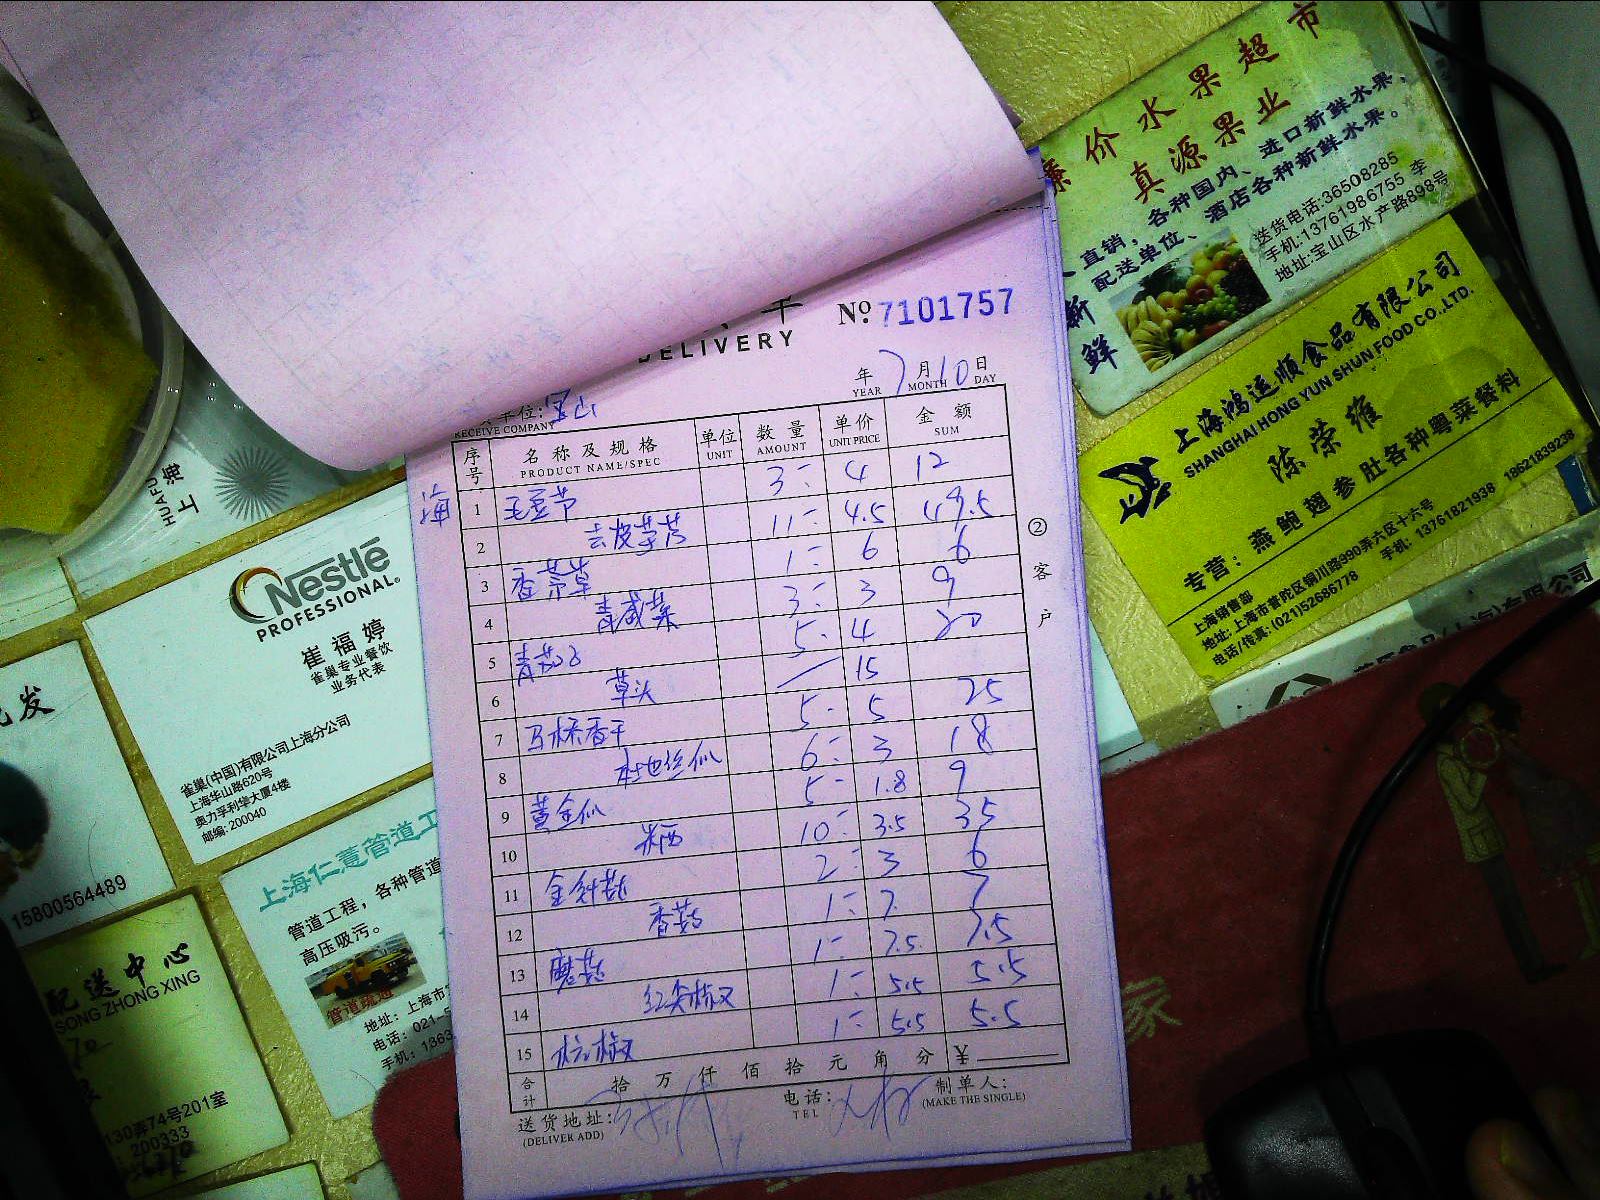 DELIVERY
No. 7101757
年 7 月 10 日
YEAR MONTH DAY
单位: 宝山
RECEIVE COMPANY
序号 名称及规格 单位 数量 单价 金额
PRODUCT NAME/SPEC UNIT AMOUNT UNIT PRICE SUM
1 毛豆节 3 4 12
2 去皮芋艿 11 4.5 49.5
3 香茅草 1 6 6
4 青咸菜 3 3 9
5 5 4 20
6 草头 15
7 马桥香干 5 5 25
8 本地丝瓜 6 3 18
9 黄金瓜 5 1.8 9
10 10 3.5 35
11 金针菇 2 3 6
12 香菇 1 7 7
13 蘑菇 1 7.5 7.5
14 红尖椒 1 5.5 5.5
15 1 5.5 5.5
合计 拾 万 仟 佰 拾 元 角 分 ¥
送货地址:
(DELIVER ADD)
电话:
TEL
制单人:
(MAKE THE SINGLE)
②客户
海
廉价水果超市
真源果业
直销,各种国内、进口新鲜水果,
配送单位、酒店各种新鲜水果。
新鲜
送货电话:36508285
手机:13761986755 李
地址:宝山区水产路898号
上海鸿运顺食品有限公司
SHANGHAI HONG YUN SHUN FOOD CO.,LTD.
陈荣维
专营:燕鲍翅参肚各种粤菜餐料
上海销售部
地址:上海市普陀区铜川路990弄六区十六号
电话/传真:(021)52686778 手机:13761821938 18621839238
HUAFU
上海
Nestlé
PROFESSIONAL®
崔福婷
雀巢专业餐饮
业务代表
雀巢(中国)有限公司上海分公司
上海华山路620号
奥力孚利华大厦4楼
邮编:200040
批发
15800564489
上海仁薏管道工
管道工程,各种管道
高压吸污。
管道疏通
地址:上海市
电话:021-5
手机:1363
配送中心
SONG ZHONG XING
130弄74号201室
200333
家